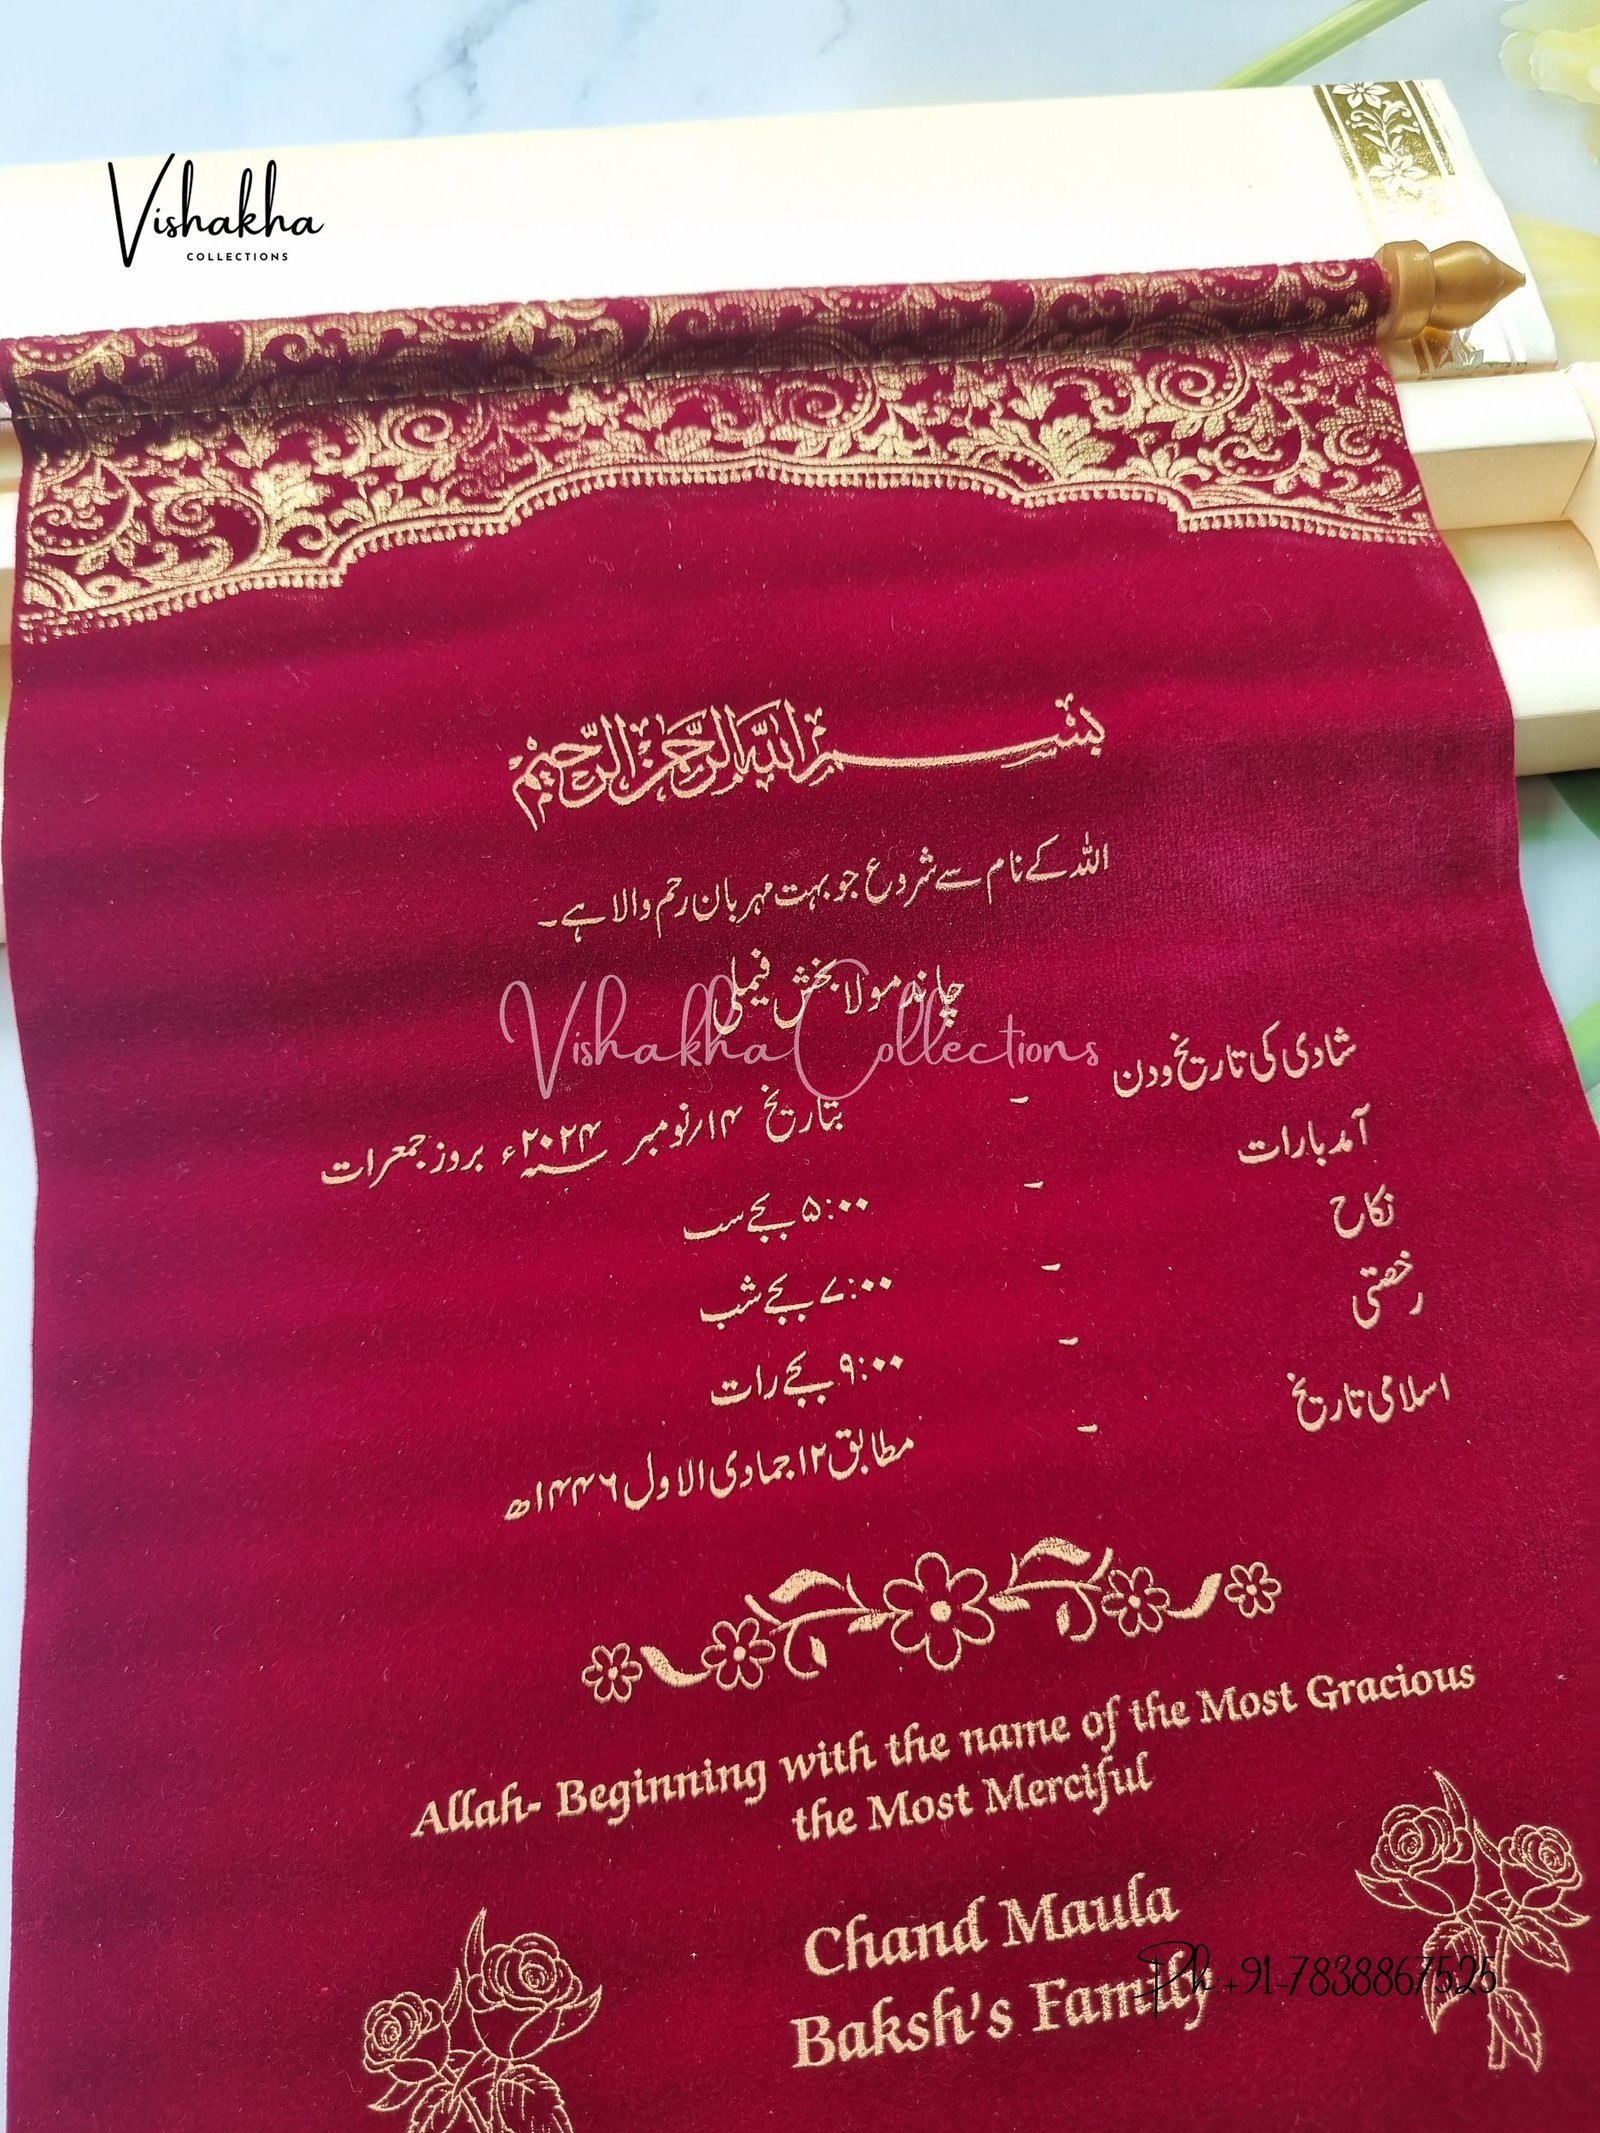 Vishakha
COLLECTIONS
بسم اللہ الرحمن الرحیم
اللہ کے نام سے شروع جو بہت مہربان رحم والا ہے۔
چاند مولا بخش فیملی
Vishakha Collections
شادی کی تاریخ و دن - بتاریخ ۱۴/نومبر ۲۰۲۴ء بروز جمعرات
آمد بارات - ۵:۰۰ بجے سب
نکاح - ۷:۰۰ بجے شب
رخصتی - ۹:۰۰ بجے رات
اسلامی تاریخ - مطابق ۱۲ جمادی الاول ۱۴۴۶ھ
Allah- Beginning with the name of the Most Gracious
the Most Merciful
Chand Maula
Baksh's Family
Ph:+91-7838867525